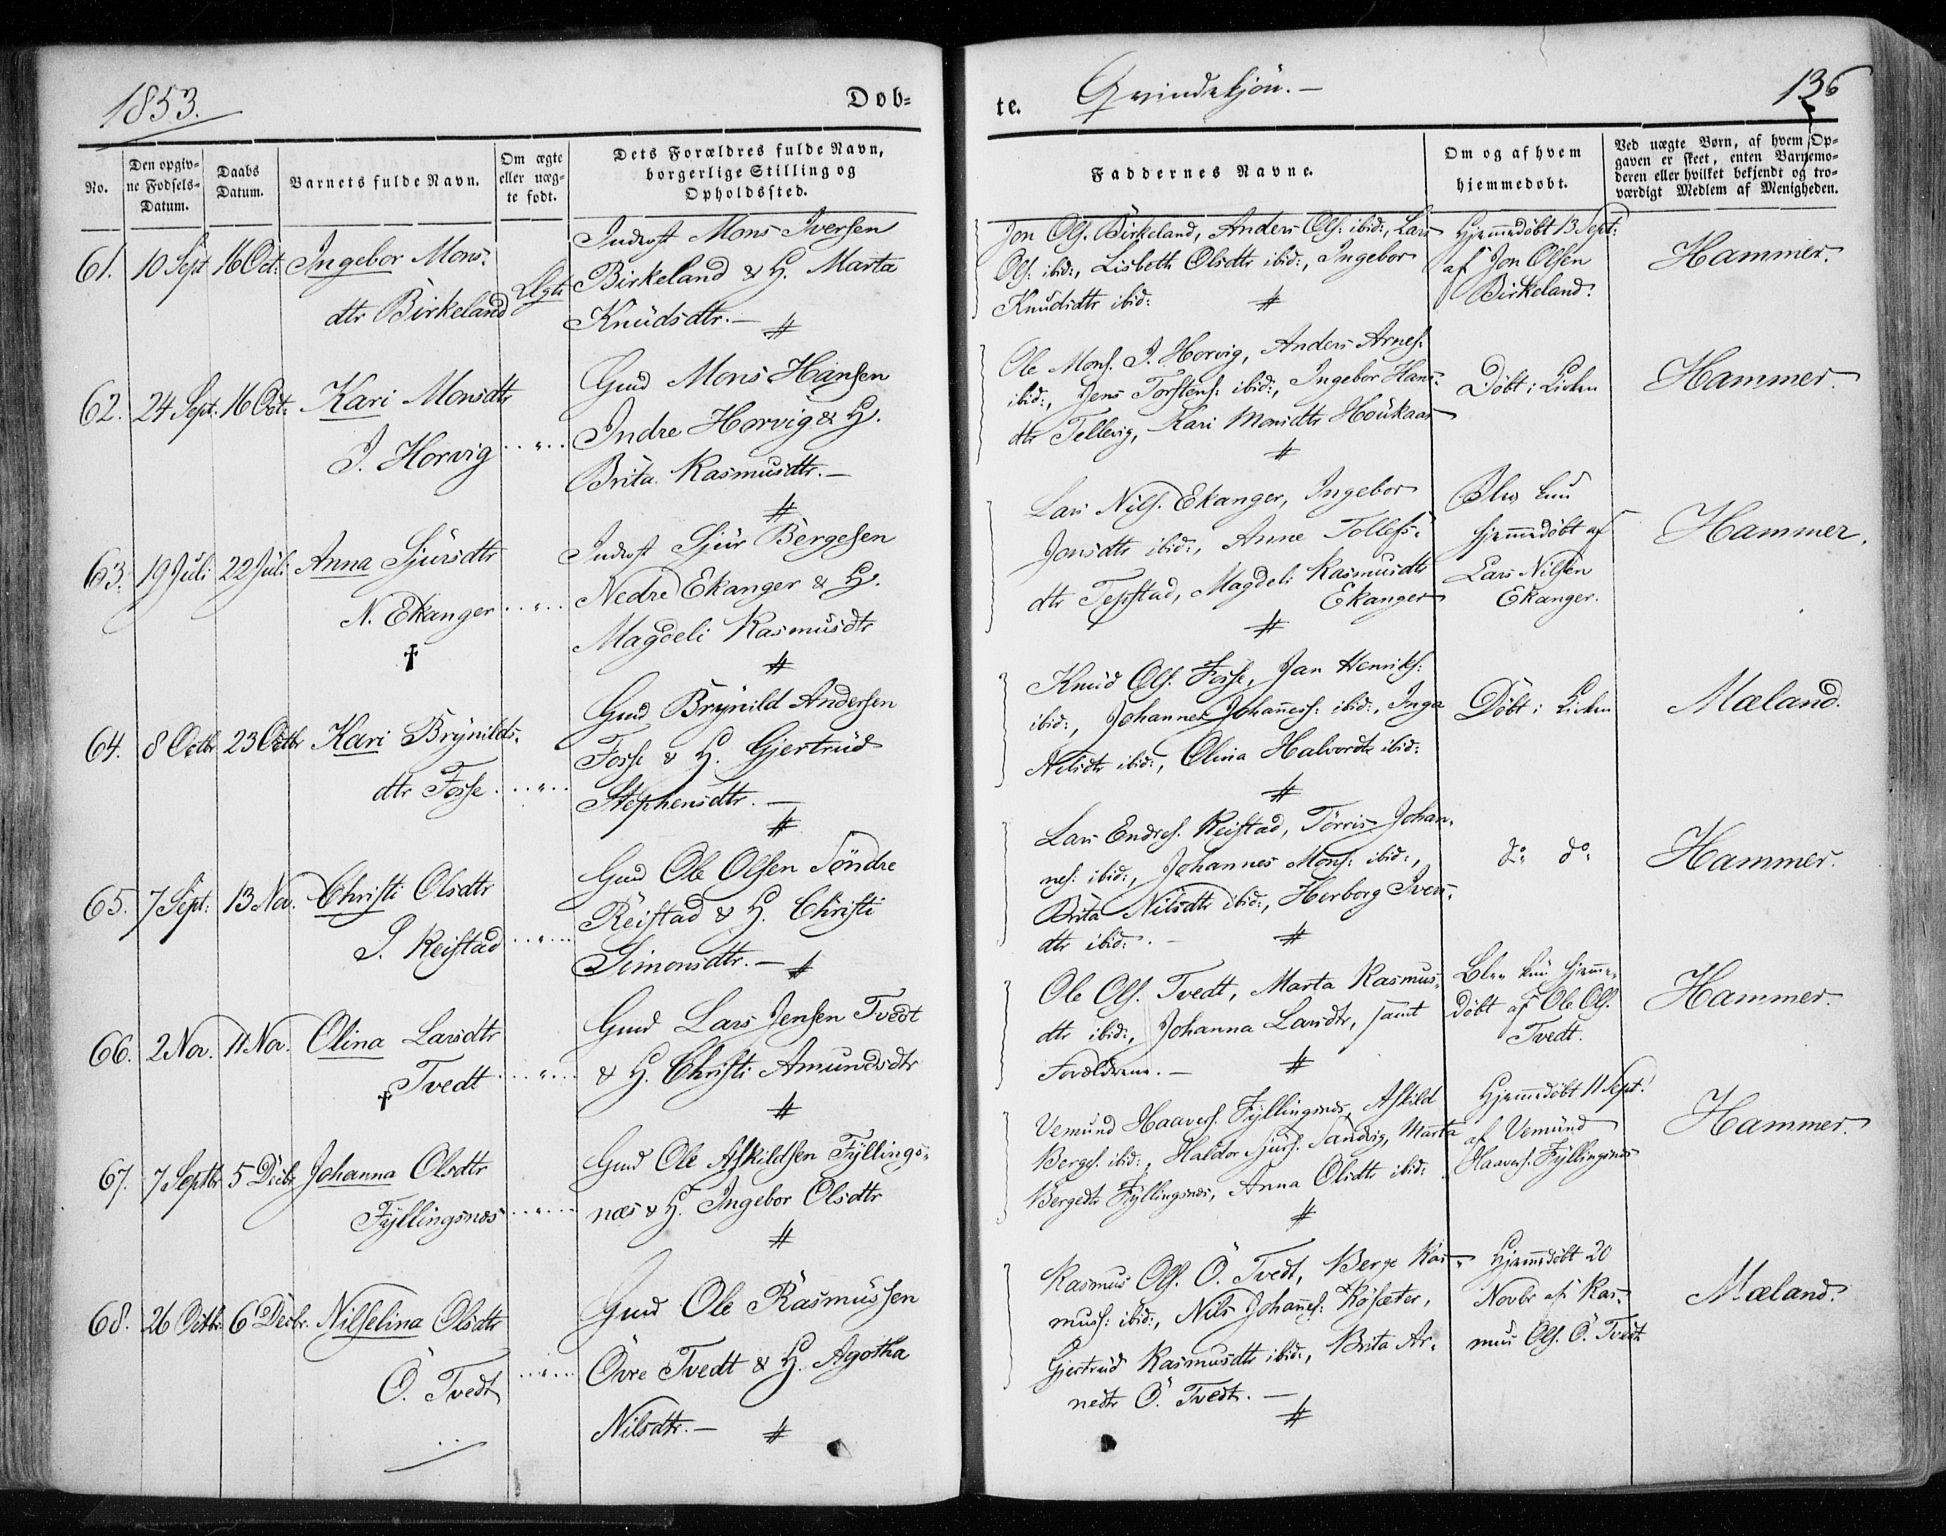 1853.
Dob-
te.
Qvindekjön.
136
No.
Den opgiv-
ne Fodsels-
Datum.
Daabs
Datum.
Barnets fulde Navn.
Om ægte
eller uæg-
te født.
Dets Forældres fulde Navn,
borgerlige Stilling og
Opholdssted.
Faddernes Navne.
Om og af hvem
hjemmedøbt.
Ved uægte Born, af hvem Op-
gaven er skeet, enten Barnemo-
deren eller hvilket bekjendt og tro-
værdigt Medlem af Menigheden.
61. 10 Sept 16 Oct: Ingebor Mons-
dtr Birkeland
Ægte
Inderst Mons Iversen
Birkeland & H. Marta
Knudsdtr.—
Jon Ols. Birkeland, Anders Ols: ibid:, Lars
Ols: ibid:, Lisbeth Olsdtr ibid:, Ingebor
Knudsdtr ibid:
Hjemmedöbt 13 Sept:
af Jon Olsen
Birkeland.
Hammer.
62. 24 Sept: 16 Oct: Kari Monsdtr
I. Horvig
Gmd Mons Hansen
Indre Horvig & H.
Brita Rasmusdtr.—
Ole Mons. I. Horvig, Anders Arnes:
ibid:, Jens Torstens: ibid:, Ingebor Hans-
dtr Tellevig, Kari Monsdtr Houkaas
Döbt i Kirken
Hammer.
63. 19 Juli 22 Juli Anna Sjursdtr
N. Ekanger
†
Inderst Sjur Bergesen
Nedre Ekanger & H.
Magdeli Rasmusdtr
Lars Nils. Ekanger, Ingebor
Jonsdtr ibid:, Anne Tollefs-
dtr Tepstad, Magdeli Rasmusdtr
Ekanger
Blev kun
hjemmedöbt af
Lars Nilsen
Ekanger.
Hammer.
64. 8 Octb 23 Octb Kari Brynilds-
dtr Fosse
Gmd Brynild Andersen
Fosse & H. Gjertrud
Stephensdtr.—
Knud Ols. Fosse, Jan Henriks:
ibid:, Johannes Johannes: ibid:, Inga
Nilsdtr ibid:, Olina Halvorsdtr ibid:
Döbt i Kirken
Mæland.
65. 7 Sept: 13 Nov. Christi Olsdtr
S. Reistad
Gmd Ole Olsen Söndre
Reistad & H. Christi
Simonsdtr.—
Lars Endres. Reistad, Törris Johan-
nes: ibid:, Johannes Mons: ibid:,
Brita Nilsdtr ibid:, Herborg Ivers-
dtr ibid:.—
do do
Hammer.
66. 2 Nov. 11 Nov. Olina Larsdtr
Tvedt
†
Gmd Lars Jensen Tvedt
& H. Christi Amundsdtr
Ole Ols. Tvedt, Marta Rasmus-
dtr ibid:, Johanna Larsdtr, samt
Forældrene.—
Blev kun hjemme-
döbt af Ole Ols.
Tvedt.
Hammer.
67. 7 Septbr 5 Decbr Johanna Olsdtr
Fyllingsnæs
Gmd Ole Askildsen Fyllings-
næs & H. Ingebor Olsdtr
Vemund Haavers. Fyllingsnæs, Askild
Berges. ibid:, Haldor Sjurs. Sandvig, Marta
Bergesdtr Fyllingsnæs, Anna Olsdtr ibid:
Hjemmedöbt 11 Sept:
af Vemund
Haavers. Fyllingsnæs
Hammer.
68. 26 Octbr. 6 Decbr. Nilselina Olsdtr
Ö. Tvedt
Gmd Ole Rasmussen
Övre Tvedt & H. Agotha
Nilsdtr.—
Rasmus Ols. Ö. Tvedt, Berge Ras-
muss: ibid:, Nils Johannes: Röseter,
Gjertrud Rasmusdtr ibid:, Brita Ar-
nedtr Ö. Tvedt.—
Hjemmedöbt 20
Novbr af Ras-
mus Ols. Ö. Tvedt
Mæland.